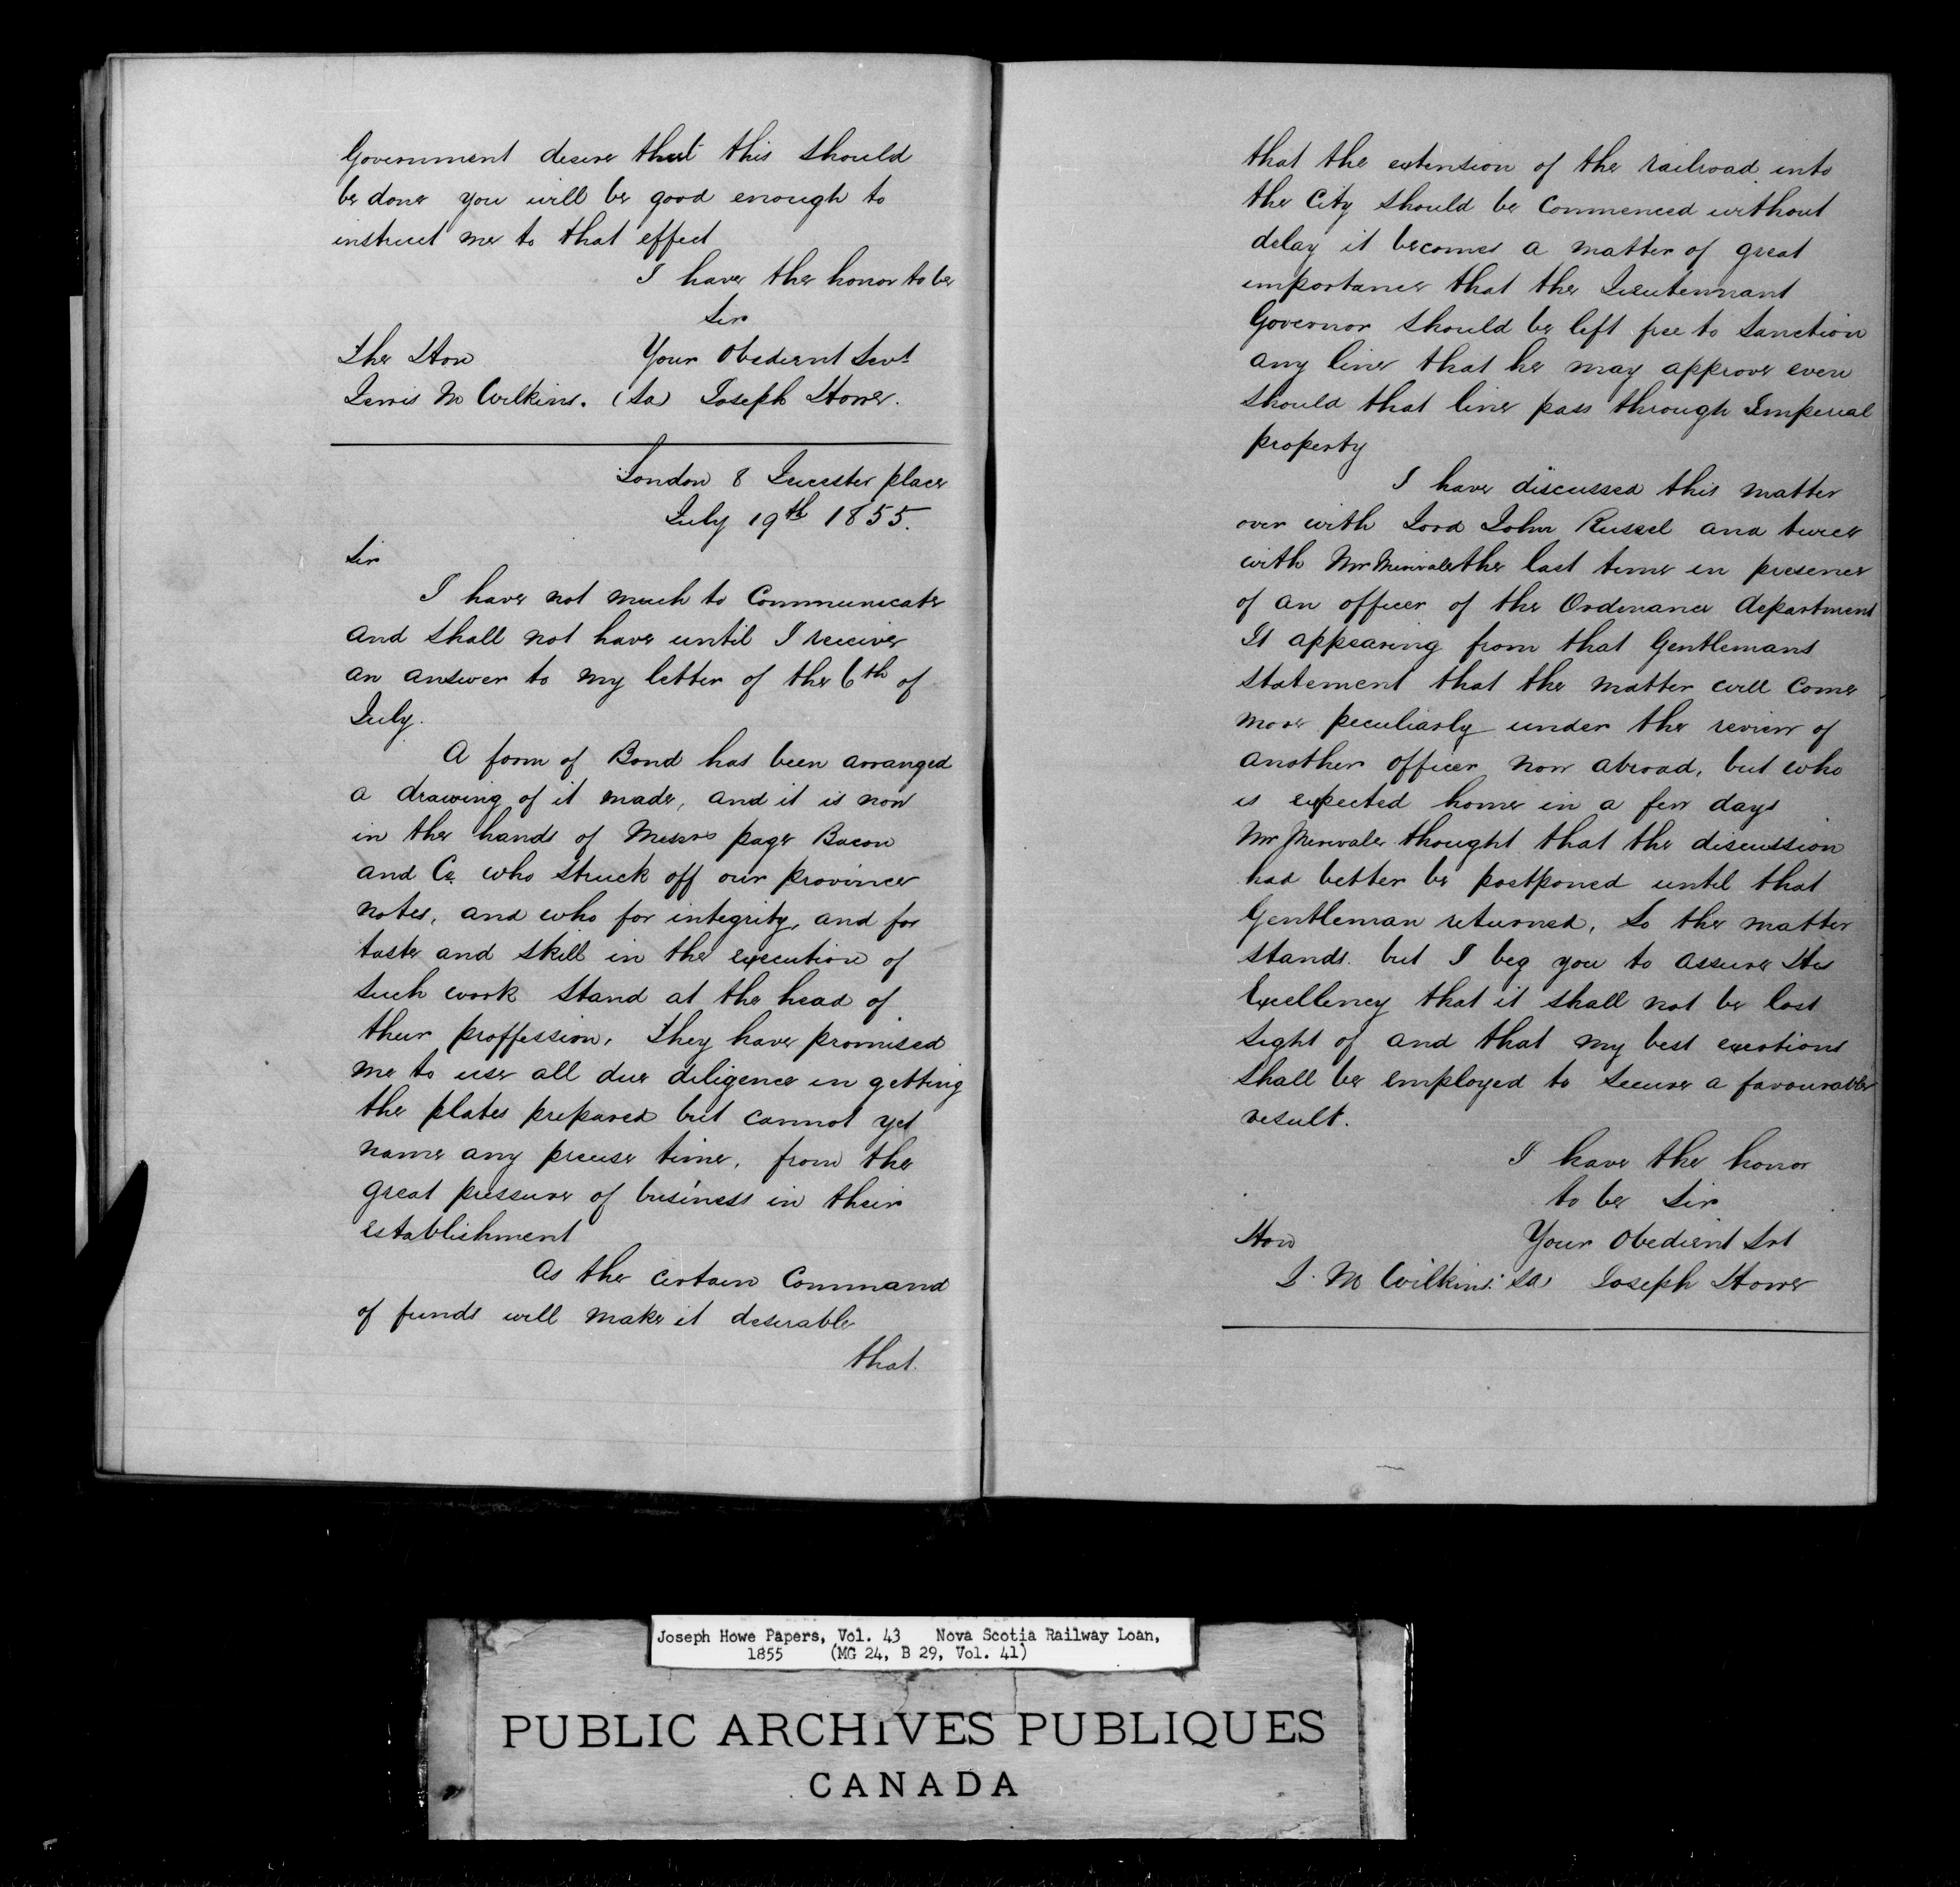 Government desire that this should
be done you will be good enough to
instruct me to that effect
I have the honor to be
Sir
The Hon Your Obedient Servt
Lewis M Wilkins. (Sd) Joseph Howe.
London 8 Leicester place
July 19th 1855.
Sir
I have not much to Communicate
and shall not have until I receive
an answer to my letter of the 6th of
July.
A form of Bond has been arranged
a drawing of it made, and it is now
in the hands of Messrs page Bacon
and Co. who struck off our province
notes, and who for integrity, and for
taste and skill in the execution of
such work stand at the head of
their proffession, They have promised
me to use all due diligence in getting
the plates prepared but cannot yet
name any precise time, from the
great pressure of business in their
establishment
As the certain Command
of funds will make it desirable
that.
that the extension of the railroad into
the City should be Commenced without
delay it becomes a matter of great
importance that the Lieutennant
Governor should be left free to Sanction
any line that he may approve even
should that line pass through Imperial
property
I have discussed this matter
over with Lord John Russel and twice
with Mr Merivale the last time in presence
of an officer of the Ordinance department
It appearing from that Gentlemans
statement that the matter will come
more peculiarly under the review of
another officer now abroad, but who
is expected home in a few days
Mr Merivale thought that the discussion
had better be postponed until that
Gentleman returned, So the matter
stands. but I beg you to assure His
Excellency that it shall not be lost
sight of and that my best exertions
shall be employed to secure a favourable
result.
I have the honor
to be Sir
Hon Your Obedient Svt
L. M Wilkins. Sd) Joseph Howe
Joseph Howe Papers, Vol. 43 Nova Scotia Railway Loan,
1855 (MG 24, B 29, Vol. 41)
PUBLIC ARCHIVES PUBLIQUES
CANADA